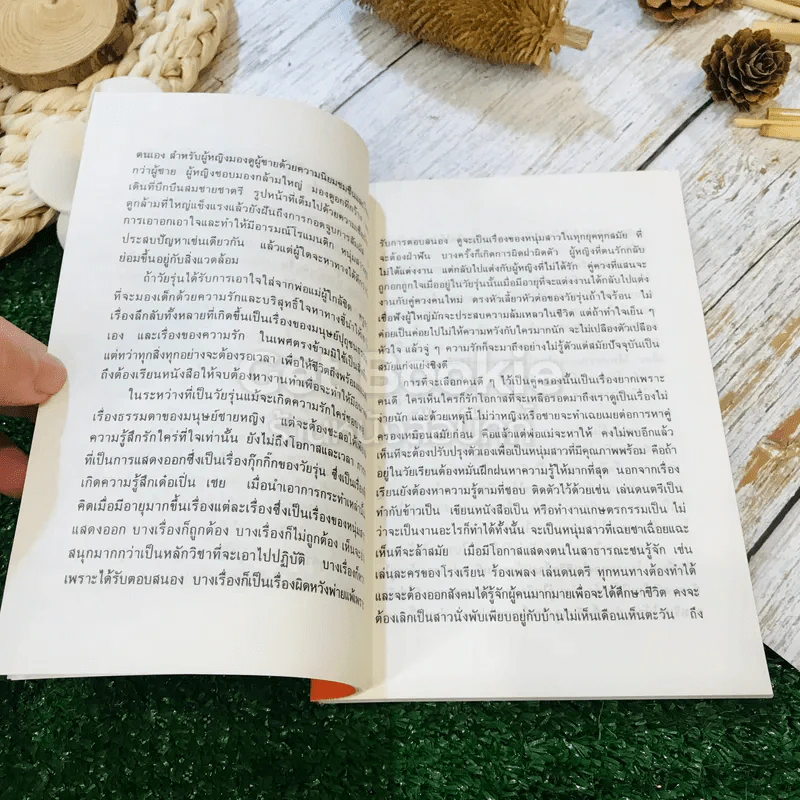 ตนเอง สำหรับผู้หญิงมองดูผู้ชายด้วยความนิยมชมชื่น
กว่าผู้ชาย ผู้หญิงชอบมองกล้ามใหญ่ มองดูอกผึ่งกว้าง
เดินที่บึกบึนสมชายชาตรี รูปหน้าที่เต็มไปด้วยความ
ดูกล้ามที่ใหญ่แข็งแรงแล้วยังฝันถึงการกอดรูปการสัมผัส
การเอาอกเอาใจและทำให้มีอารมณ์โรแมนติก หนุ่มสาว
ประสบปัญหาเช่นเดียวกัน แล้วแต่ผู้ใดจะหาทางได้
ย่อมขึ้นอยู่กับสิ่งแวดล้อม
ถ้าวัยรุ่นได้รับการเอาใจใส่จากพ่อแม่ผู้ใกล้ชิด
ที่จะมองเด็กด้วยความรักและบริสุทธิ์ใจหาทางชี้นำให้
เรื่องลึกลับทั้งหลายที่เกิดขึ้นเป็นเรื่องของมนุษย์ปุถุชน
เอง และเรื่องของความรัก ในเพศตรงข้ามมิใช้เป็นสิ่ง
แต่ทว่าทุกสิ่งทุกอย่างจะต้องรอเวลา เพื่อให้ชีวิตถึงพร้อม
ถึงต้องเรียนหนังสือให้จบต้องหางานทำเพื่อจะทำให้มี
ในระหว่างที่เป็นวัยรุ่นแม้จะเกิดความรักใคร่ชอบ
เรื่องธรรมดาของมนุษย์ชายหญิง แต่จะต้องชะลอให้
ความรู้สึกรักใคร่ที่ใจเท่านั้น ยังไม่ถึงโอกาสและเวลา
ที่เป็นการแสดงออกซึ่งเป็นเรื่องกุ๊กกิ๊กของวัยรุ่น ซึ่งเป็นเรื่อง
เกิดความรู้สึกเด๋อเป็น เชย เมื่อนำเอาการกระทำเหล่านั้น
คิดเมื่อมีอายุมากขึ้นเรื่องแต่ละเรื่องซึ่งเป็นเรื่องของหนุ่ม
แสดงออก บางเรื่องก็ถูกต้อง บางเรื่องก็ไม่ถูกต้อง เห็นจะ
สนุกมากกว่าเป็นหลักวิชาที่จะเอาไปปฏิบัติ บางเรื่องก็
เพราะได้รับตอบสนอง บางเรื่องก็เป็นเรื่องผิดหวังพ่ายแพ้เพราะ
รับการตอบสนอง ดูจะเป็นเรื่องของหนุ่มสาวในทุกยุคทุกสมัย ที่
จะต้องฝ่าฟัน บางครั้งก็เกิดการผิดฝาผิดตัว ผู้หญิงที่ตนรักกลับ
ไม่ได้แต่งงาน แต่กลับไปแต่งกับผู้หญิงที่ไม่ได้รัก คู่ควงที่แสนจะ
ถูกอกถูกใจเมื่ออยู่ในวัยรุ่นนั้นเมื่อมีอายุที่จะแต่งงานได้กลับไปแต่ง
งานกับคู่ควงคนใหม่ ตรงหัวเลี้ยวหัวต่อของวัยรุ่นถ้าใจร้อน ไม่
เชื่อฟังผู้ใหญ่มักจะประสบความล้มเหลวในชีวิต แต่ถ้าทำใจเย็น ๆ
ค่อยเป็นค่อยไปไม่ให้ความหวังกับใครมากนัก จะไม่เปลืองตัวเปลือง
หัวใจ แล้วจู่ ๆ ความรักก็จะมาถึงอย่างไม่รู้ตัวแต่สมัยปัจจุบันเป็น
สมัยแก่งแย่งชิงดี
การที่จะเลือกคนดี ๆ ไว้เป็นคู่ครองนั้นเป็นเรื่องยากเพราะ
คนดี ใครเห็นใครก็รักโอกาสที่จะเหลือรอดมาถึงเราดูเป็นเรื่องไม่
ง่ายนัก และด้วยเหตุนี้ ไม่ว่าหญิงหรือชายจะทำเฉยเมยต่อการหาคู่
ครองเหมือนสมัยก่อน คือแล้วแต่พ่อแม่จะหาให้ คงไม่พบอีกแล้ว
เห็นทีจะต้องปรับปรุงตัวเองเพื่อเป็นหนุ่มสาวที่มีคุณภาพพร้อม คือถ้า
อยู่ในวัยเรียนต้องหมั่นฝึกฝนหาความรู้ให้มากที่สุด นอกจากเรื่อง
เรียนยังต้องหาความรู้ตามที่ชอบ ติดตัวไว้ด้วยเช่น เล่นดนตรีเป็น
ทำกับข้าวเป็น เขียนหนังสือเป็น หรือทำงานเกษตรกรรมเป็น ไม่
ว่าจะเป็นงานอะไรก็ทำได้ทั้งนั้น จะเป็นหนุ่มสาวที่เฉยชาเฉื่อยแฉะ
เห็นทีจะล้าสมัย เมื่อมีโอกาสแสดงตนในสาธารณะชนรู้จัก เช่น
เล่นละครของโรงเรียน ร้องเพลง เล่นดนตรี ทุกหนทางต้องทำได้
และจะต้องออกสังคมได้รู้จักผู้คนมากมายเพื่อจะได้ศึกษาชีวิต คงจะ
ต้องเลิกเป็นสาวนั่งพับเพียบอยู่กับบ้านไม่เห็นเดือนเห็นตะวัน ถึง